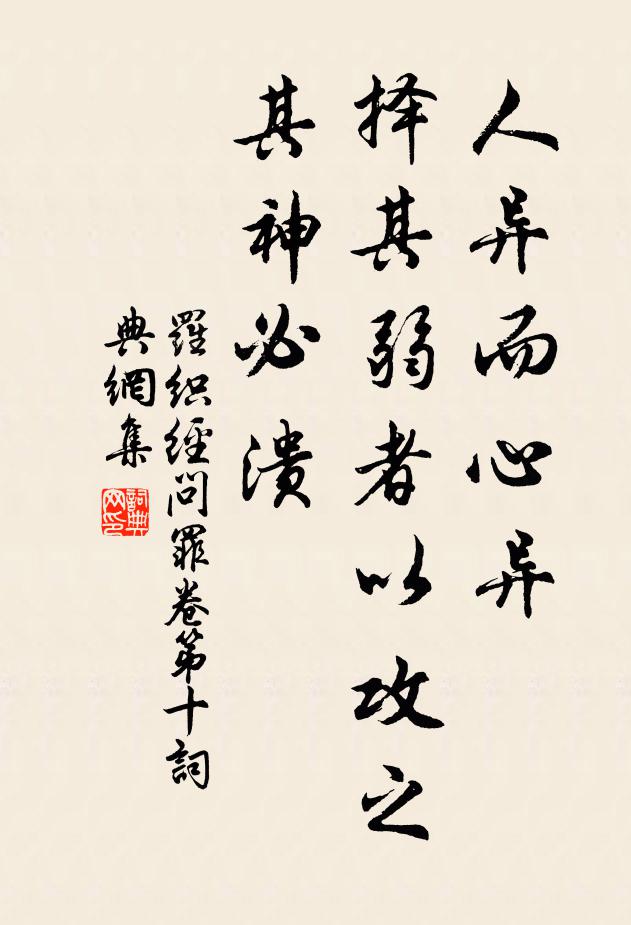 人异而心异
择其弱者以攻之
其神必溃
羅织經问罪卷第十詞
典網集
詞典
网印